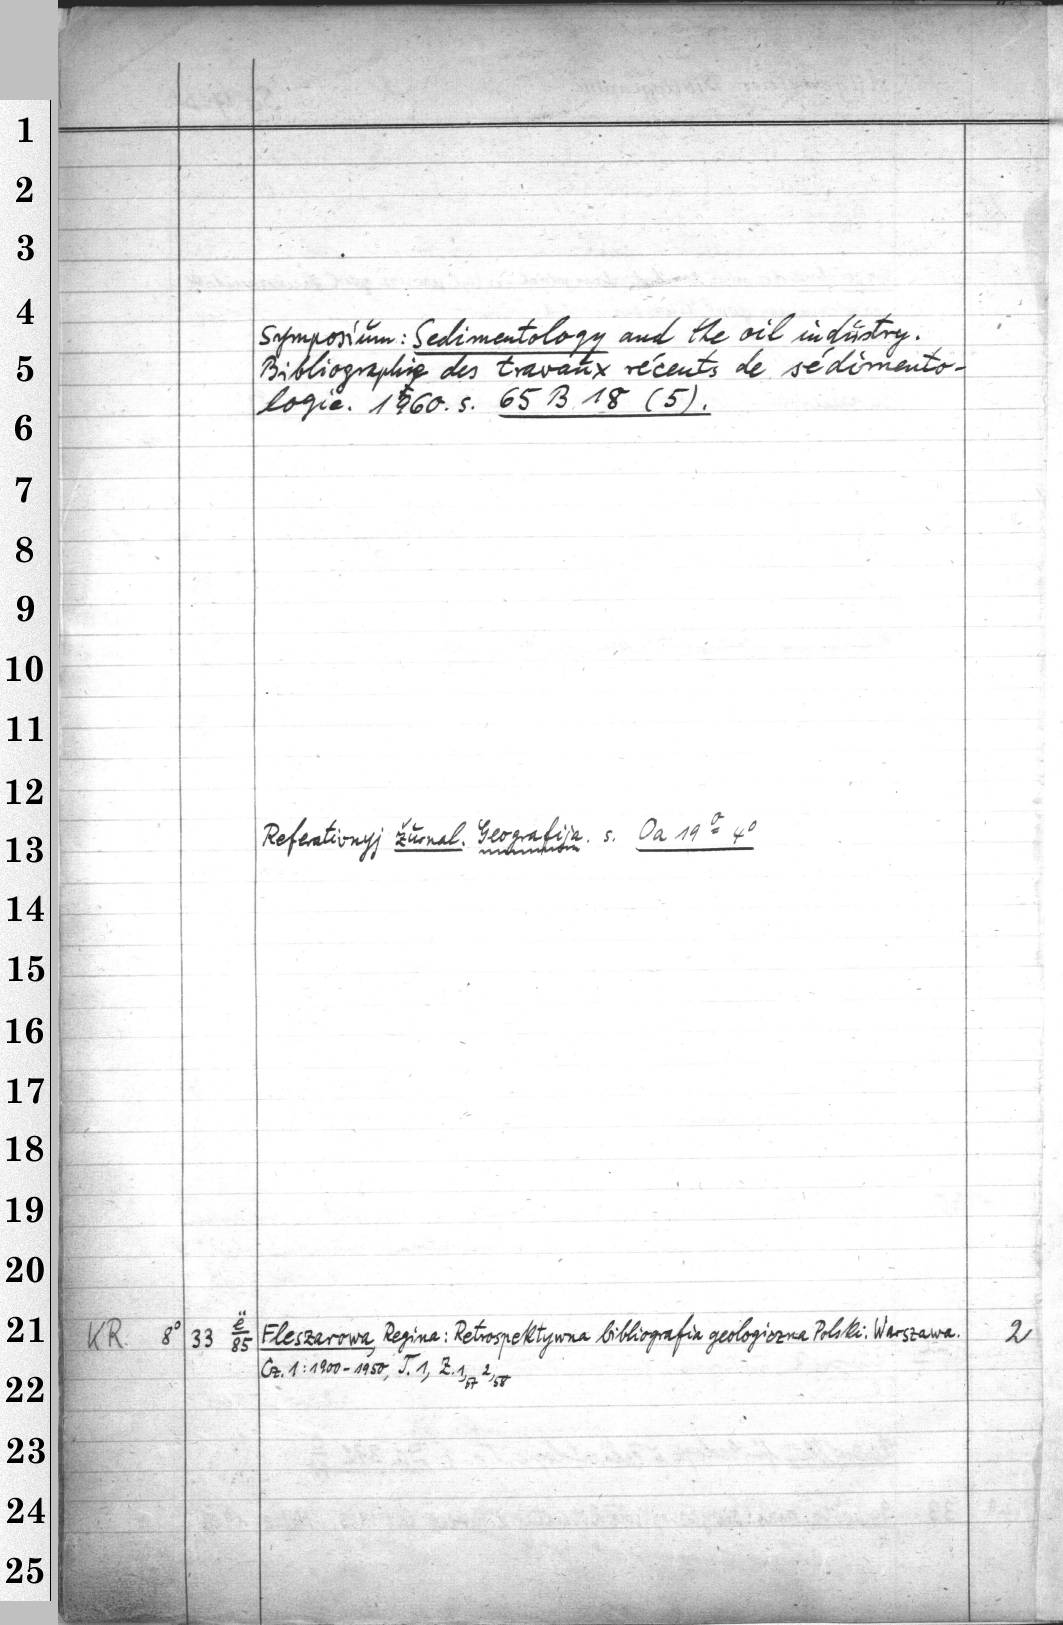 1
2
3
4
Symposium: Sedimentology and the oil industry.
5
Bibliographie des travaux récents de sédimento-
logie. 1960. s. 65 B 18 (5).
6
7
8
9
10
11
12
13
Referativnyj žurnal. Geografija. s. Oa 19 a 4°
14
15
16
17
18
19
20
21
KR. 8° 33 ë/85 Fleszarowa, Regina: Retrospektywna bibliografia geologiczna Polski. Warszawa. 2
Cz. 1: 1900-1950, T. 1, Z. 1,57 2,58
22
23
24
25